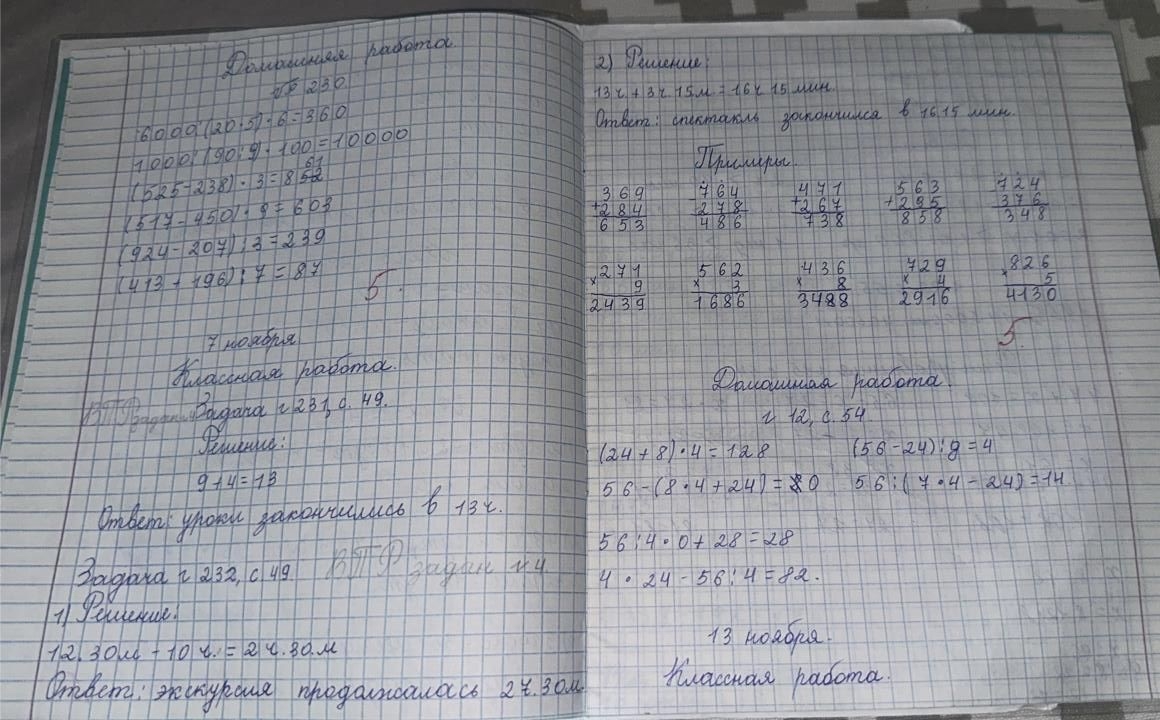 Домашняя работа
№ 230.
6000:(20·5)·6=360
1000:(90:9)·100=10000
(525-238)·3=861
(517-450)·9=603
(924-207):3=239
(413+196):7=87
5.
7 ноября
Классная работа.
ВПР задан
Задача № 231, с. 49.
Решение:
9+4=13
Ответ: уроки закончились в 13 ч.
Задача № 232, с. 49. ВПР задан №4.
1) Решение:
12.30м - 10 ч. = 2ч.30.м
Ответ: экскурсия продолжалась 2ч.30м.
2) Решение:
13 ч + 3ч. 15м = 16ч 15 мин.
Ответ: спектакль закончился в 16.15 мин.
Примеры.
369 764 471 563 724
+284 -278 +267 +295 376
653 486 738 858 348
271 562 436 729 826
× 9 × 3 × 8 × 4 × 5
2439 1686 3488 2916 4130
5.
Домашняя работа.
№ 12, с. 54.
(24+8)·4=128 (56-24):8=4
56-(8·4+24)=0 56:(7·4-24)=14
56:4·0+28=28
4·24-56:4=82.
13 ноября.
Классная работа.